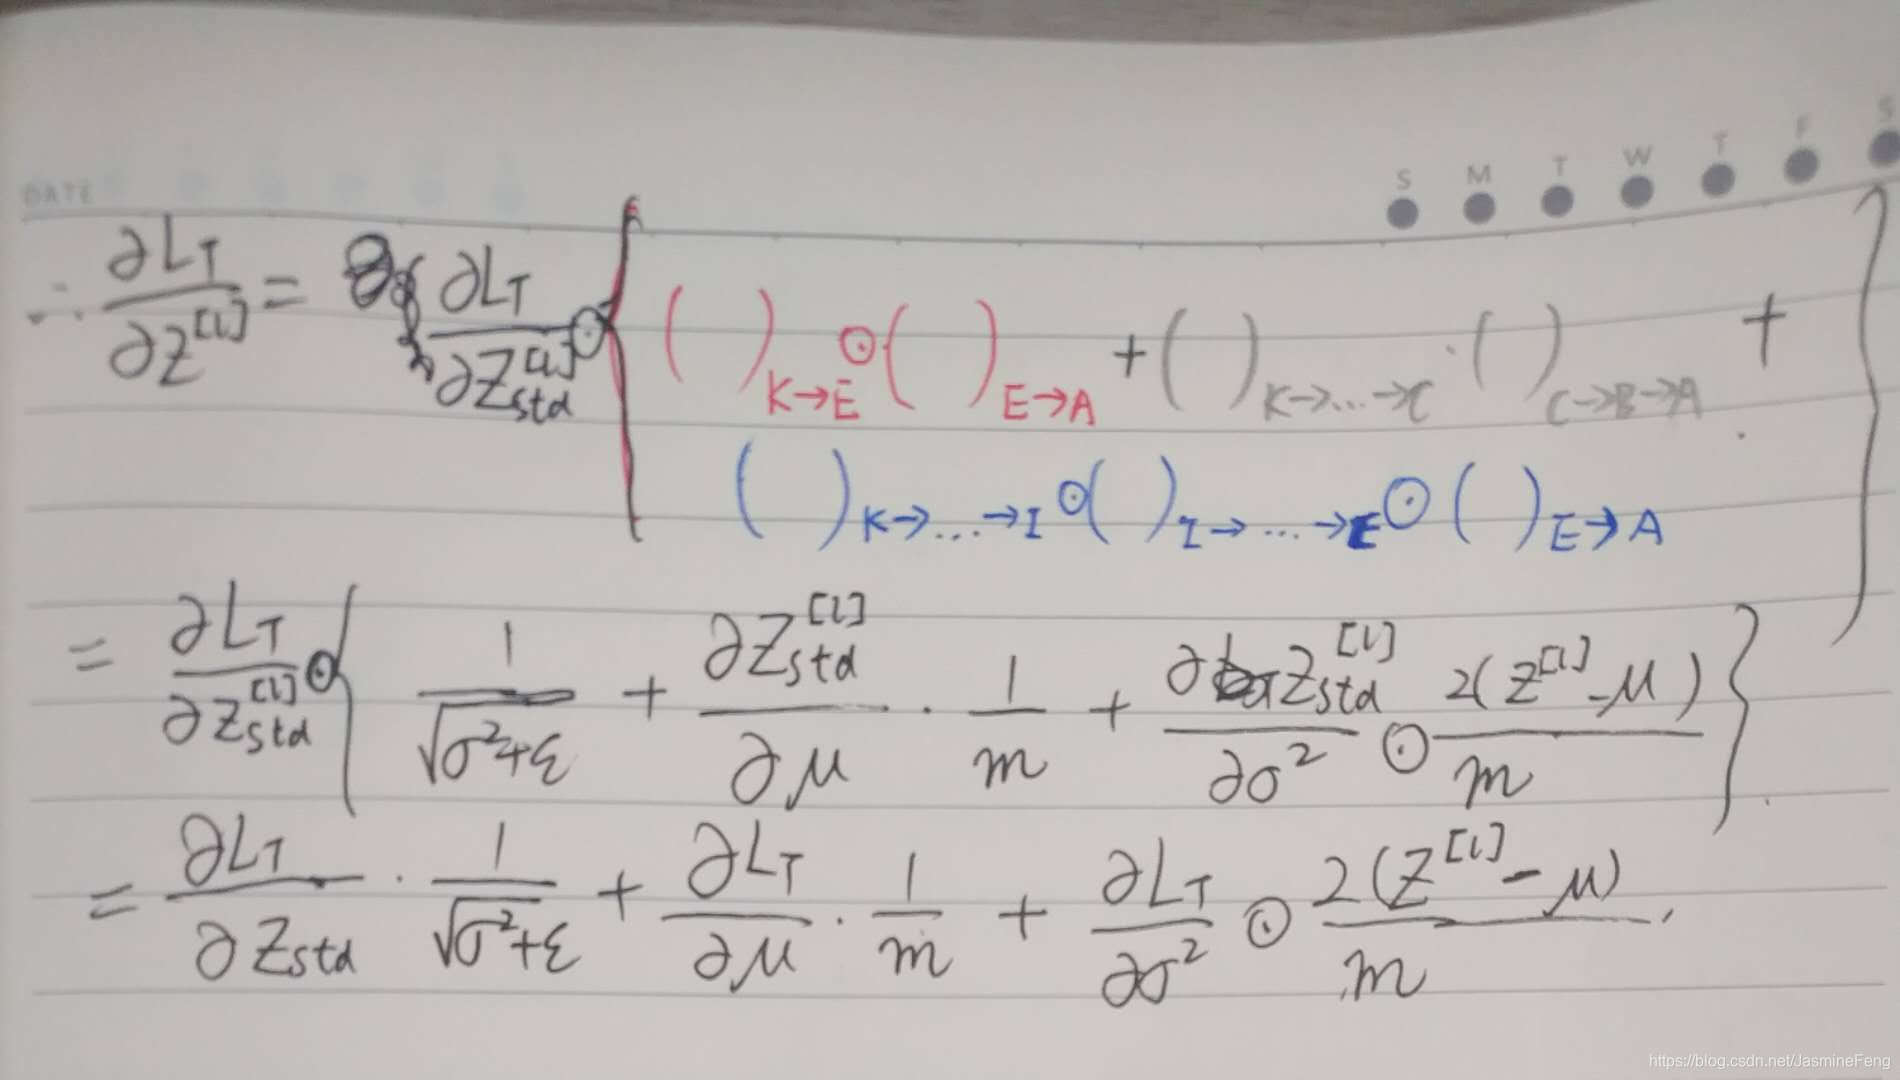 DATE
S M T W T F S
∴ ∂L_T/∂Z^[l] = ∂L_T/∂Z_std^[l] ⊙ { ( )_{K→E} ⊙ ( )_{E→A} + ( )_{K→...→C} · ( )_{C→B→A} +
( )_{K→...→I} ⊙ ( )_{I→...→E} ⊙ ( )_{E→A} }
= ∂L_T/∂Z_std^[l] ⊙ { 1/√(σ²+ε) + ∂Z_std^[l]/∂μ · 1/m + ∂Z_std^[l]/∂σ² ⊙ 2(Z^[l]-μ)/m }
= ∂L_T/∂Z_std · 1/√(σ²+ε) + ∂L_T/∂μ · 1/m + ∂L_T/∂σ² ⊙ 2(Z^[l]-μ)/m.
https://blog.csdn.net/JasmineFeng